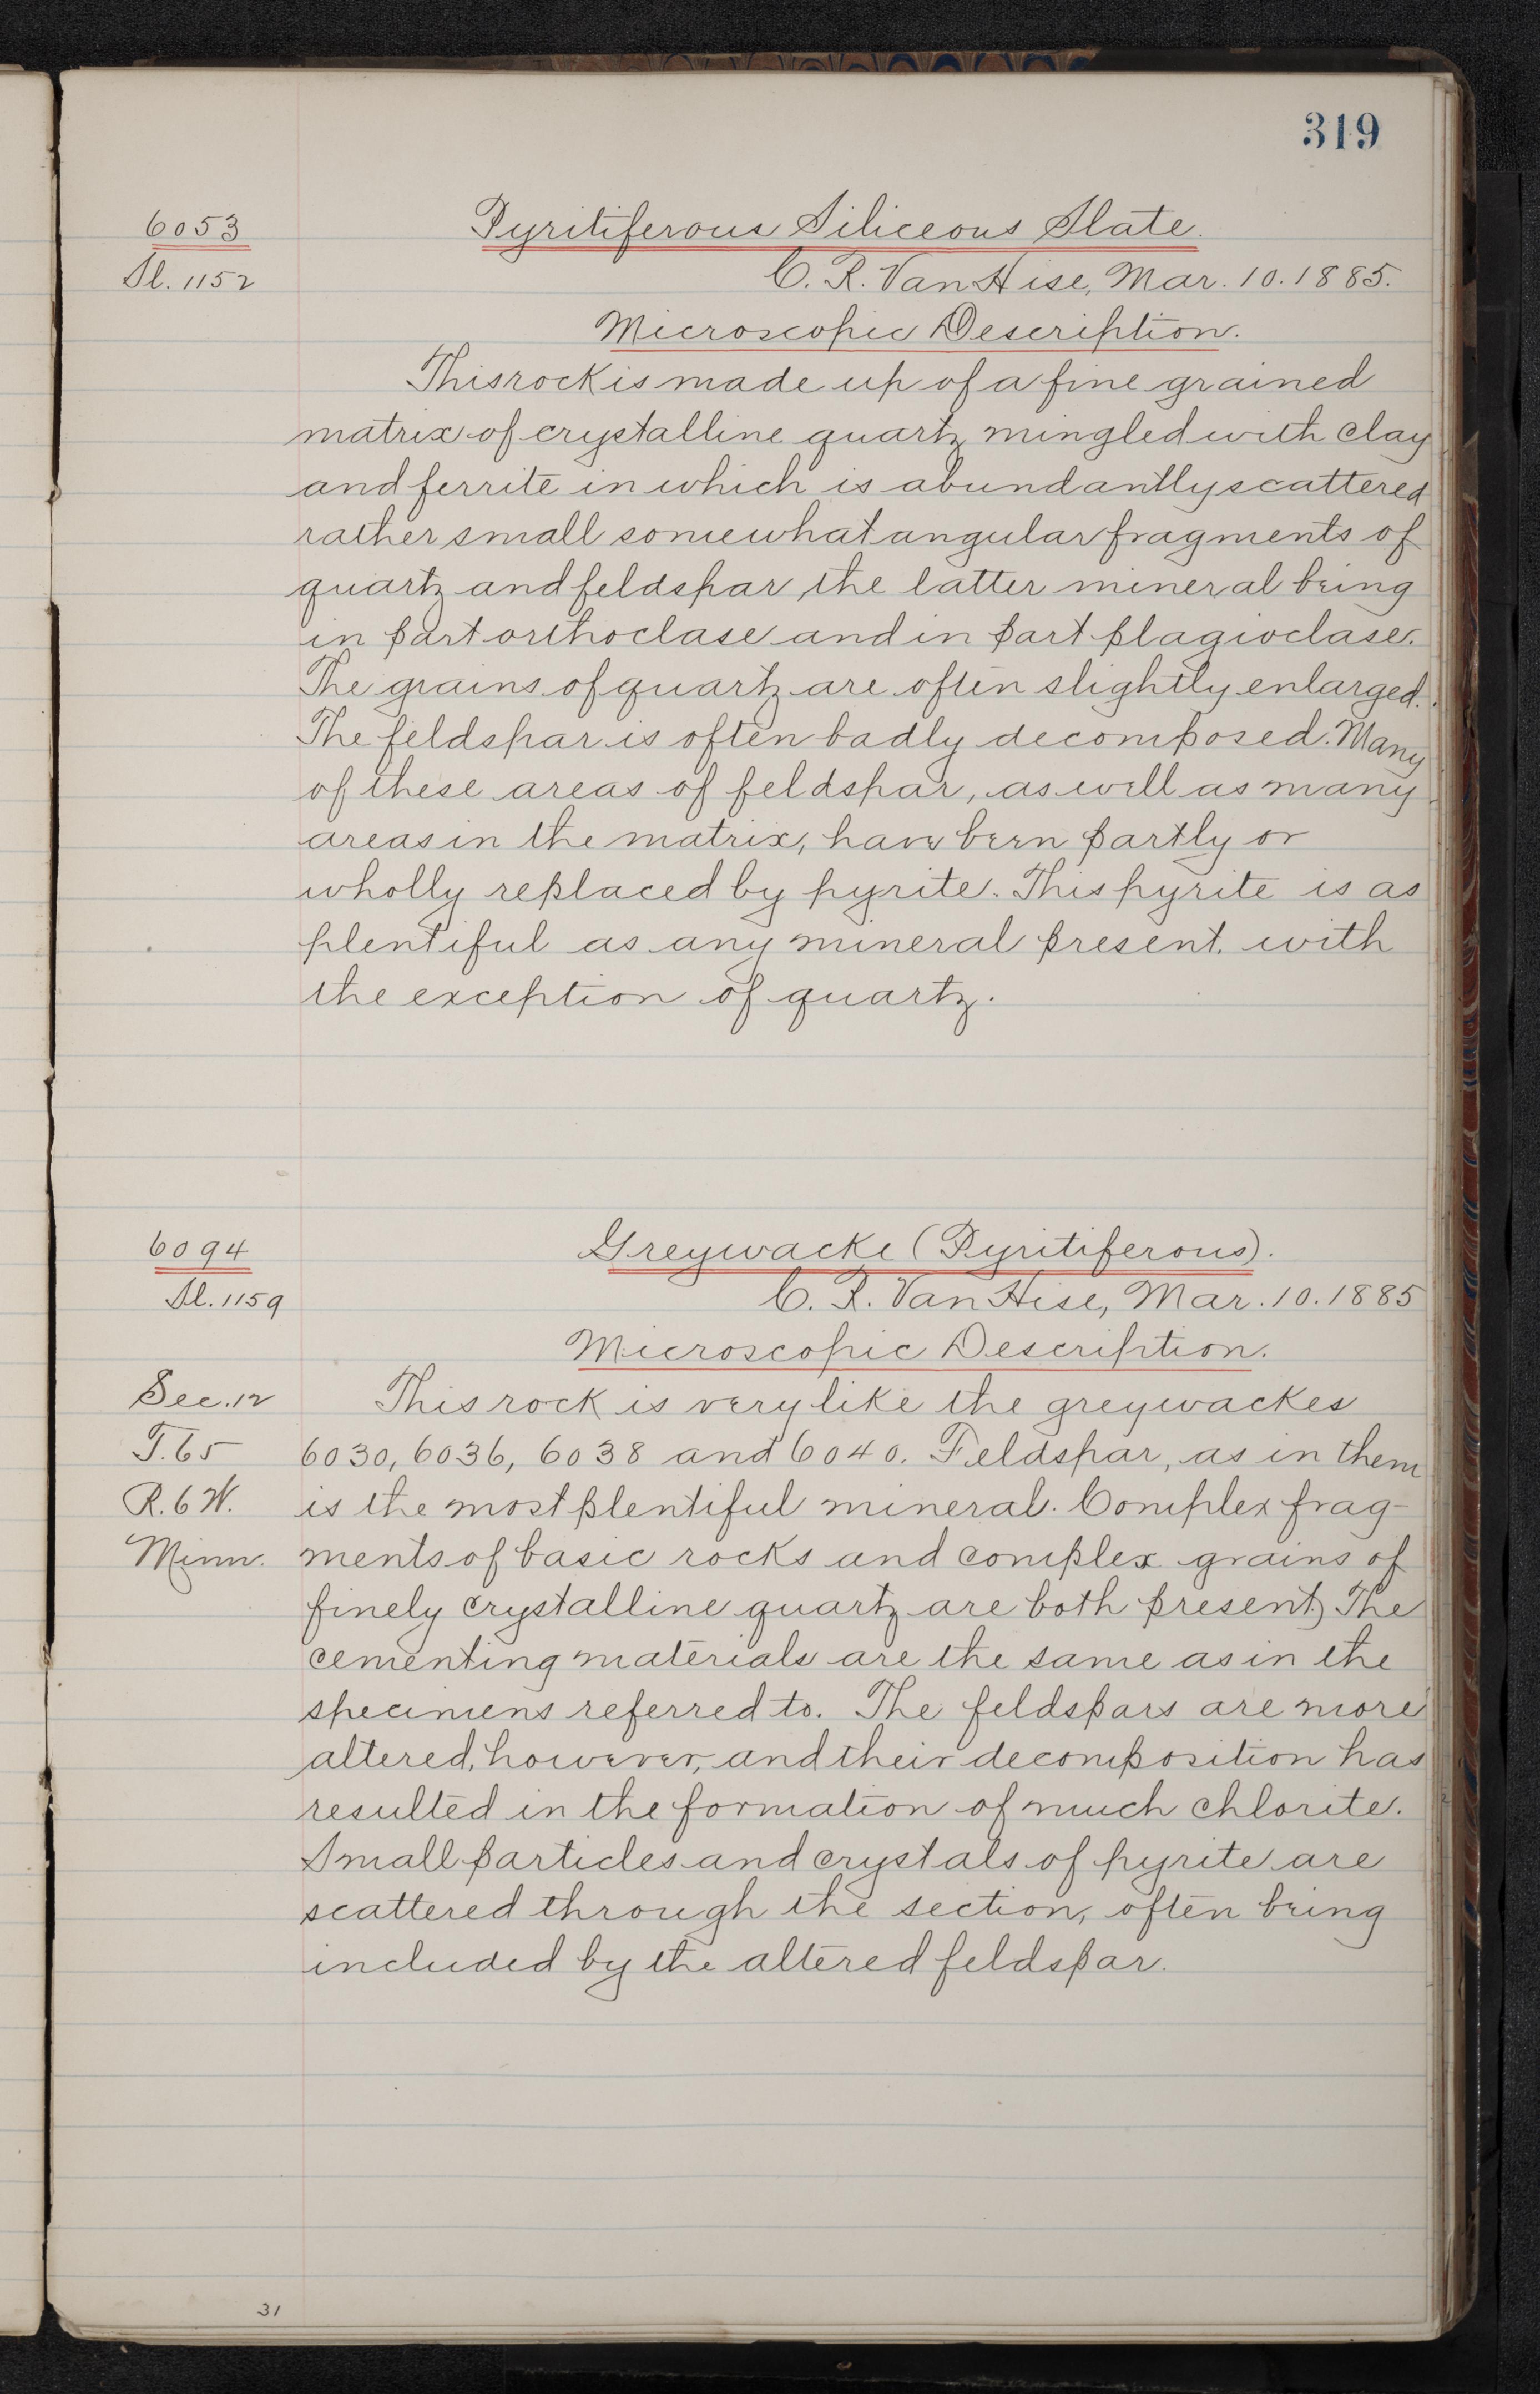 319
6053
Sl. 1152
Pyritiferous Siliceous Slate.
C. R. Van Hise, Mar. 10. 1885.
Microscopic Description.
This rock is made up of a fine grained
matrix of crystalline quartz mingled with clay
and ferrite in which is abundantly scattered
rather small somewhat angular fragments of
quartz and feldspar, the latter mineral being
in part orthoclase and in part plagioclase.
The grains of quartz are often slightly enlarged.
The feldspar is often badly decomposed. Many
of these areas of feldspar, as well as many
areas in the matrix, have been partly or
wholly replaced by pyrite. This pyrite is as
plentiful as any mineral present, with
the exception of quartz.
6094
Sl. 1159
Sec. 12
T. 65
R. 6 W.
Minn.
Greywacke (Pyritiferous).
C. R. Van Hise, Mar. 10. 1885
Microscopic Description.
This rock is very like the greywackes
6030, 6036, 6038 and 6040. Feldspar, as in them
is the most plentiful mineral. Complex frag-
ments of basic rocks and complex grains of
finely crystalline quartz are both present. The
cementing materials are the same as in the
specimens referred to. The feldspars are more
altered, however, and their decomposition has
resulted in the formation of much chlorite.
Small particles and crystals of pyrite are
scattered through the section, often being
included by the altered feldspar.
31